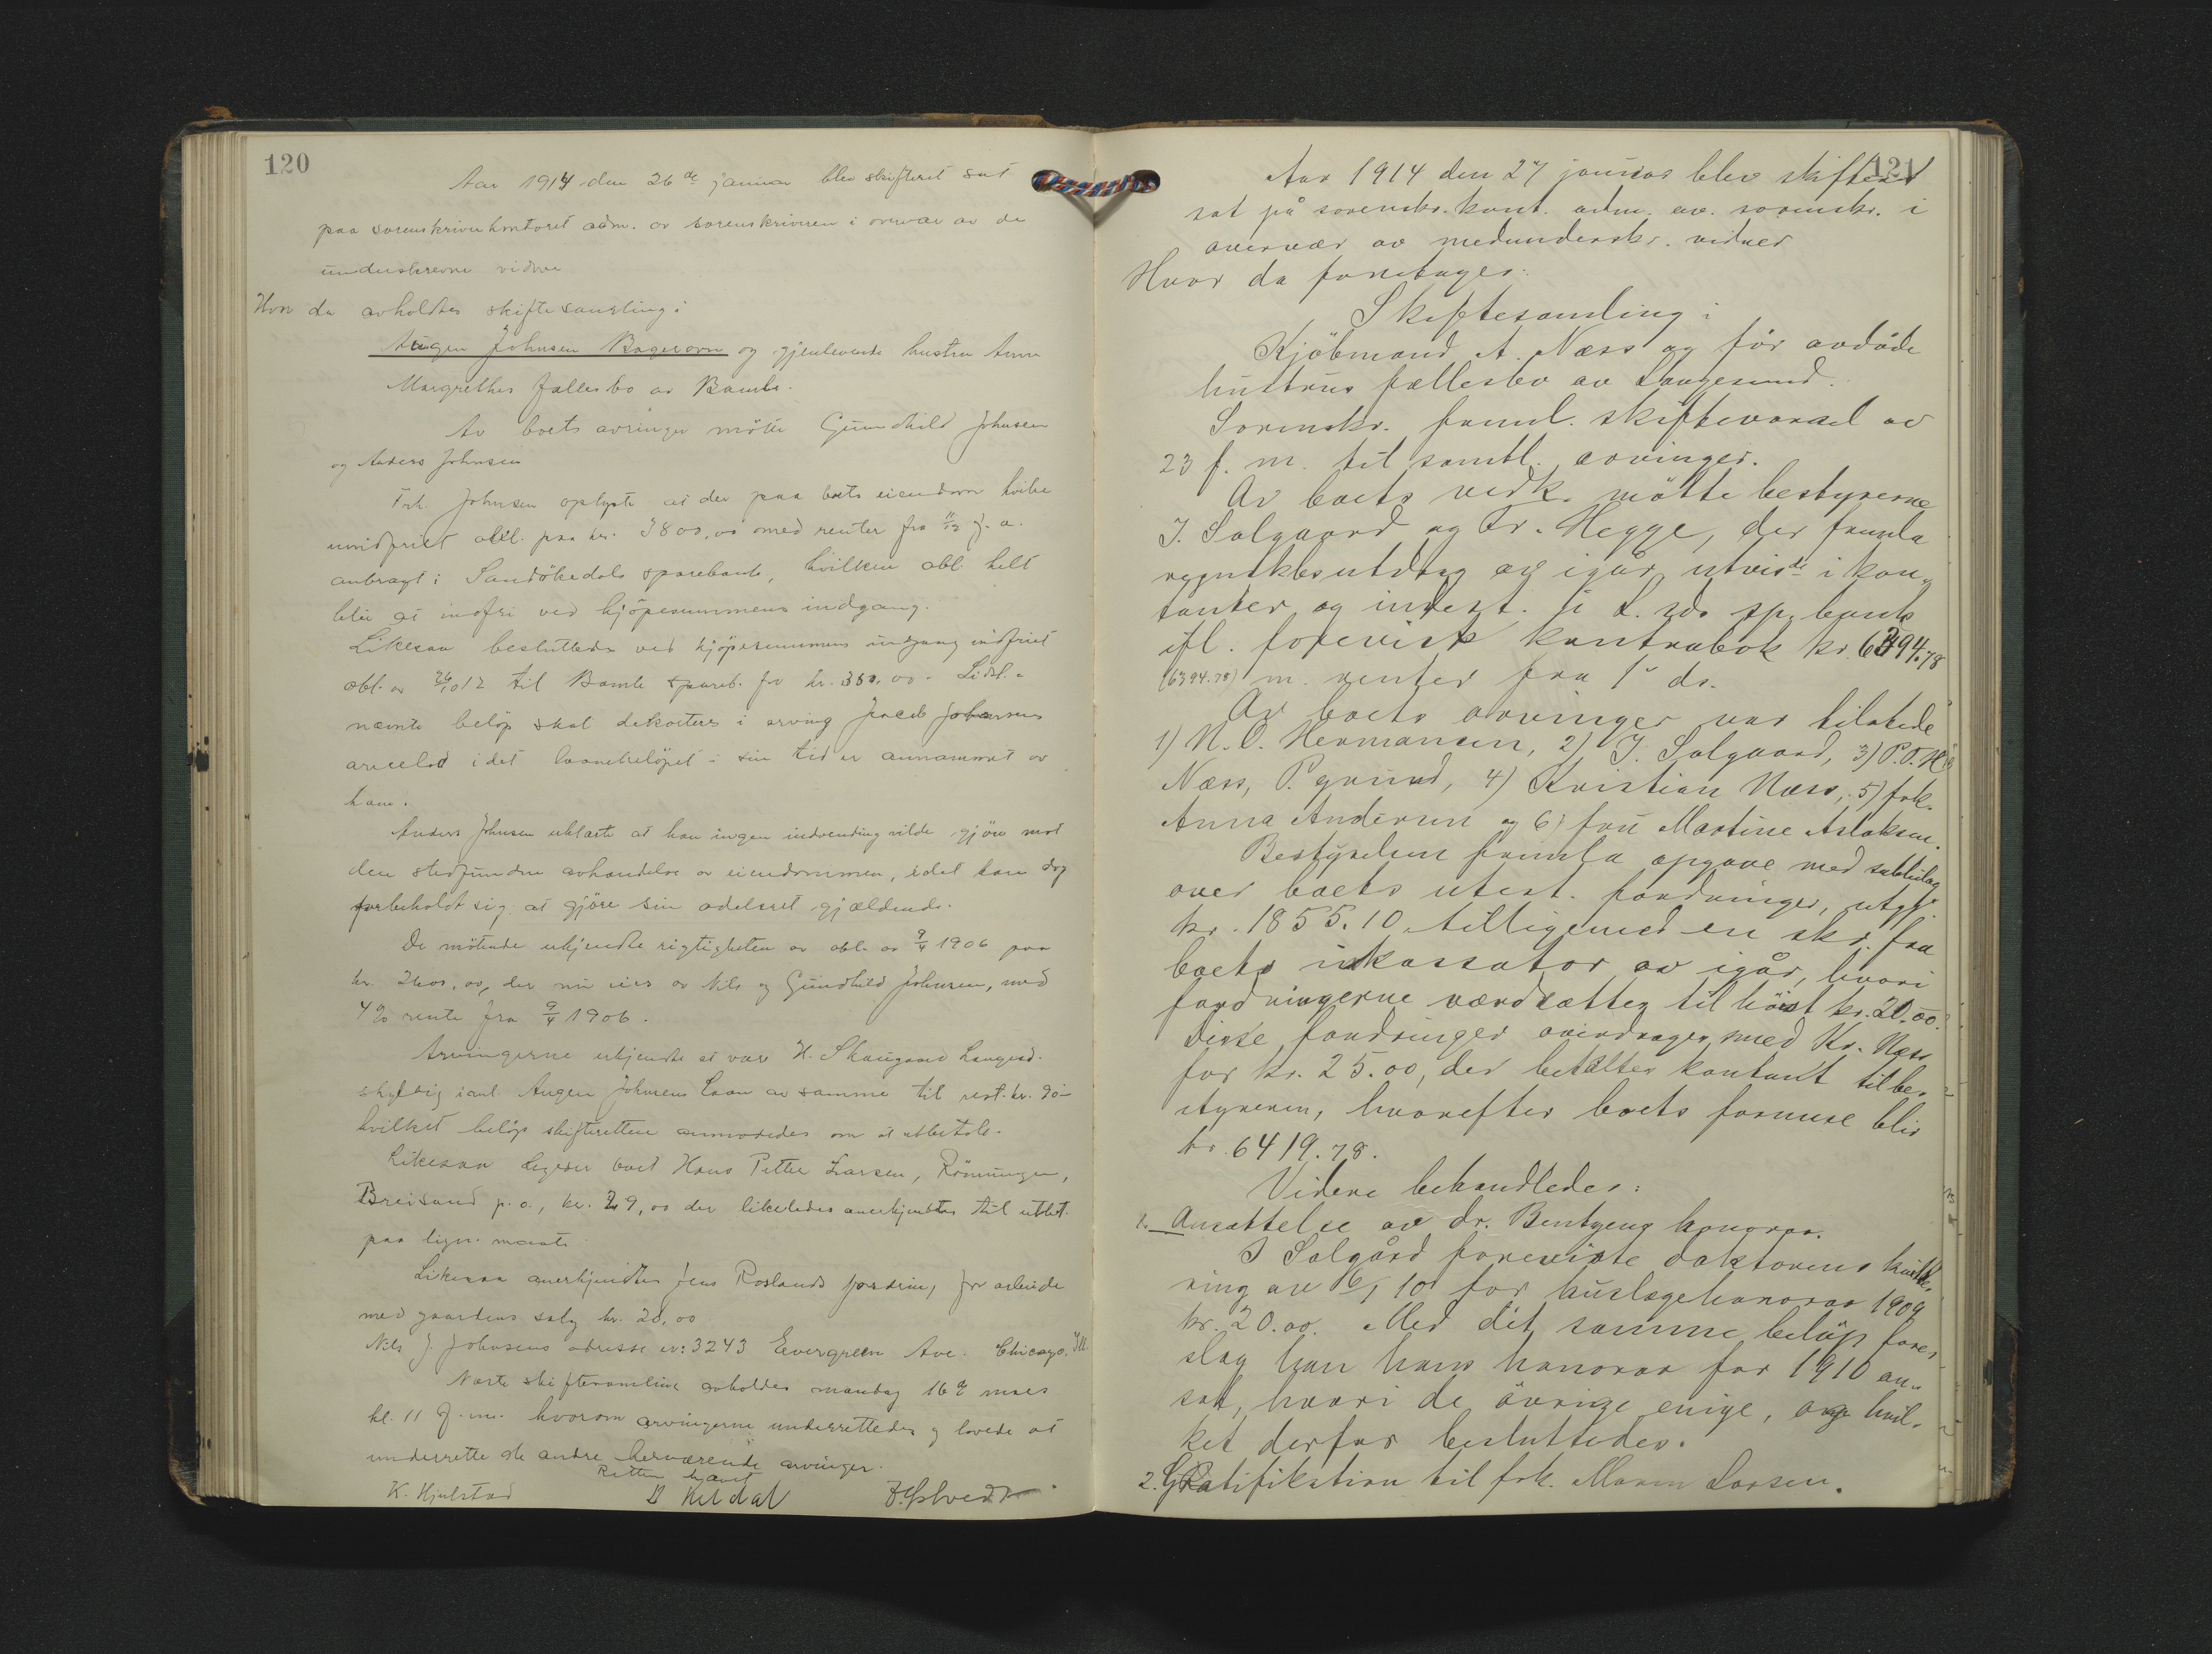 120
Aar 1914 den 26de januar blev skifteret sat
paa sorenskriverkontoret adm. av sorenskriveren i overvær av de
underskrevne vidner
Hvor da avholdtes skiftesamling i
Augen Johnsen Bagerovn og gjenlevende hustru Anne
Margrethes fællesbo av Bamle.
Av boets arvinger mötte Gunhild Johnsen
og Anders Johnsen
Frk. Johnsen oplyste at der paa boets eiendom hviler
uindfriet obl. paa kr. 3800,00 med renter fra 11/12 f. a.
anbragt i Sandökedals sparebank, hvilken obl. helt
blir at indfri ved kjöpesummens indgang.
Likesaa besluttedes ved kjöpesummens indgang indfriet
obl. av 26/10 12 til Bamle spareb. for kr. 350,00. Sidst-
nævnte belöp skal dekorteres i arving Jacob Johnsens
arvelod idet laanebelöpet i sin tid er annammet av
ham.
Anders Johnsen erklærte at han ingen indvending vilde gjöre mot
den stedfundne avhendelse av eiendommen, idet han dog
forbeholdt sig at gjöre sin odelsret gjældende.
De mötende erkjendte rigtigheten av obl. av 9/4 1906 paa
kr. 2600,00, der nu eies av Nils og Gunhild Johnsen, med
4% rente fra 9/4 1906.
Arvingerne erkjendte at være H. Skaugaard Langesd.
skyldig ianl. Augen Johnsens laan av samme til rest. kr. 90-
hvilket belöp skifteretten anmodedes om at utbetale.
Likesaa skyldes boet Hans Petter Larsen, Rönningen,
Breisand p. o., kr. 29,00 der likeledes anerkjendtes til utbet.
paa lign. maate.
Likesaa anerkjendtes Jens Roslands fordring for arbeide
med gaardens salg kr. 28,00
Nils J. Johnsens adresse er: 3243 Evergreen Ave. Chicago. Ill.
Næste skiftesamling avholdes mandag 16de mars
kl. 11 f.m. hvorom arvingerne underrettedes og lovede at
underrette de andre herværende arvinger.
Retten hævet
K. Hjulstad
121
Aar 1914 den 27 januar blev skifteret
sat på sorenskr. kont. adm. av. sorenskr. i
overvær av medunderskr. vidner
Hvor da foretages:
Skiftesamling i
Kjöbmand A. Næss og för avdöde
hustrus fællesbo av Langesund.
Sorenskr. freml. skiftevarsel av
23 f. m. til samtl. arvinger.
Av boets vedk. mötte bestyrerne
J. Salgaard og Fr. Hegge, der fremla
regnskbsutdrag av igår, utvisde i kon-
tanter og indest. i L. sds sp. bank
ifl. forevist kontrabok kr. 6394.78
(6394.78) m. renter fra 1' ds.
Av boets arvinger var tilstede
1) N. O. Hermansen, 2) J. Salgaard, 3) P. T. H.
Næss, P.grund, 4) Kristian Næss, 5) frk.
Anna Andersen og 6) fru Martine Aslaksen.
Bestyrelsen fremla opgave med
over boets utest. fordringer, utgj.
kr. 1855.10 tilligemed en skr. fra
boets inkassator av igår, hvori
fordringerne værdsættes til höist kr. 20.00.
Disse fordringer overdrages med Kr. Næss
for kr. 25.00, der betaltes kontant til be-
styreren, hvorefter boets formue blir
kr. 6419.78.
Videre behandledes:
1. Ansættelse av dr. Bentzens honorar.
J Salgård foreviste doktorens kvitte-
ring av 6/1 10 for huslægehonorar 1909
kr. 20.00. Med dit samme belöp fore-
slog han hans honorar for 1910 an-
sat, hvori de övrige enige, og hvil-
ket derfor besluttedes.
2. Gratifikation til frk. Maren Larsen.